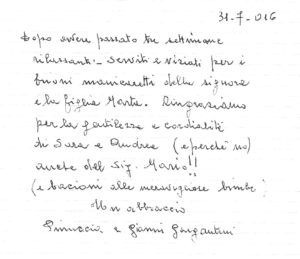 31-7-016
Dopo avere passato tre settimane
rilassanti - Serviti e viziati per i
buoni manicaretti della signora
e la figlia Marta. Ringraziamo
per la gentilezza e cordialità
di Sara e Andrea (e perché no)
anche del Sig. Mario!!
(e bacioni alle meravigliose bimbe!
Un abbraccio
Pinuccia e Gianni Gargantini